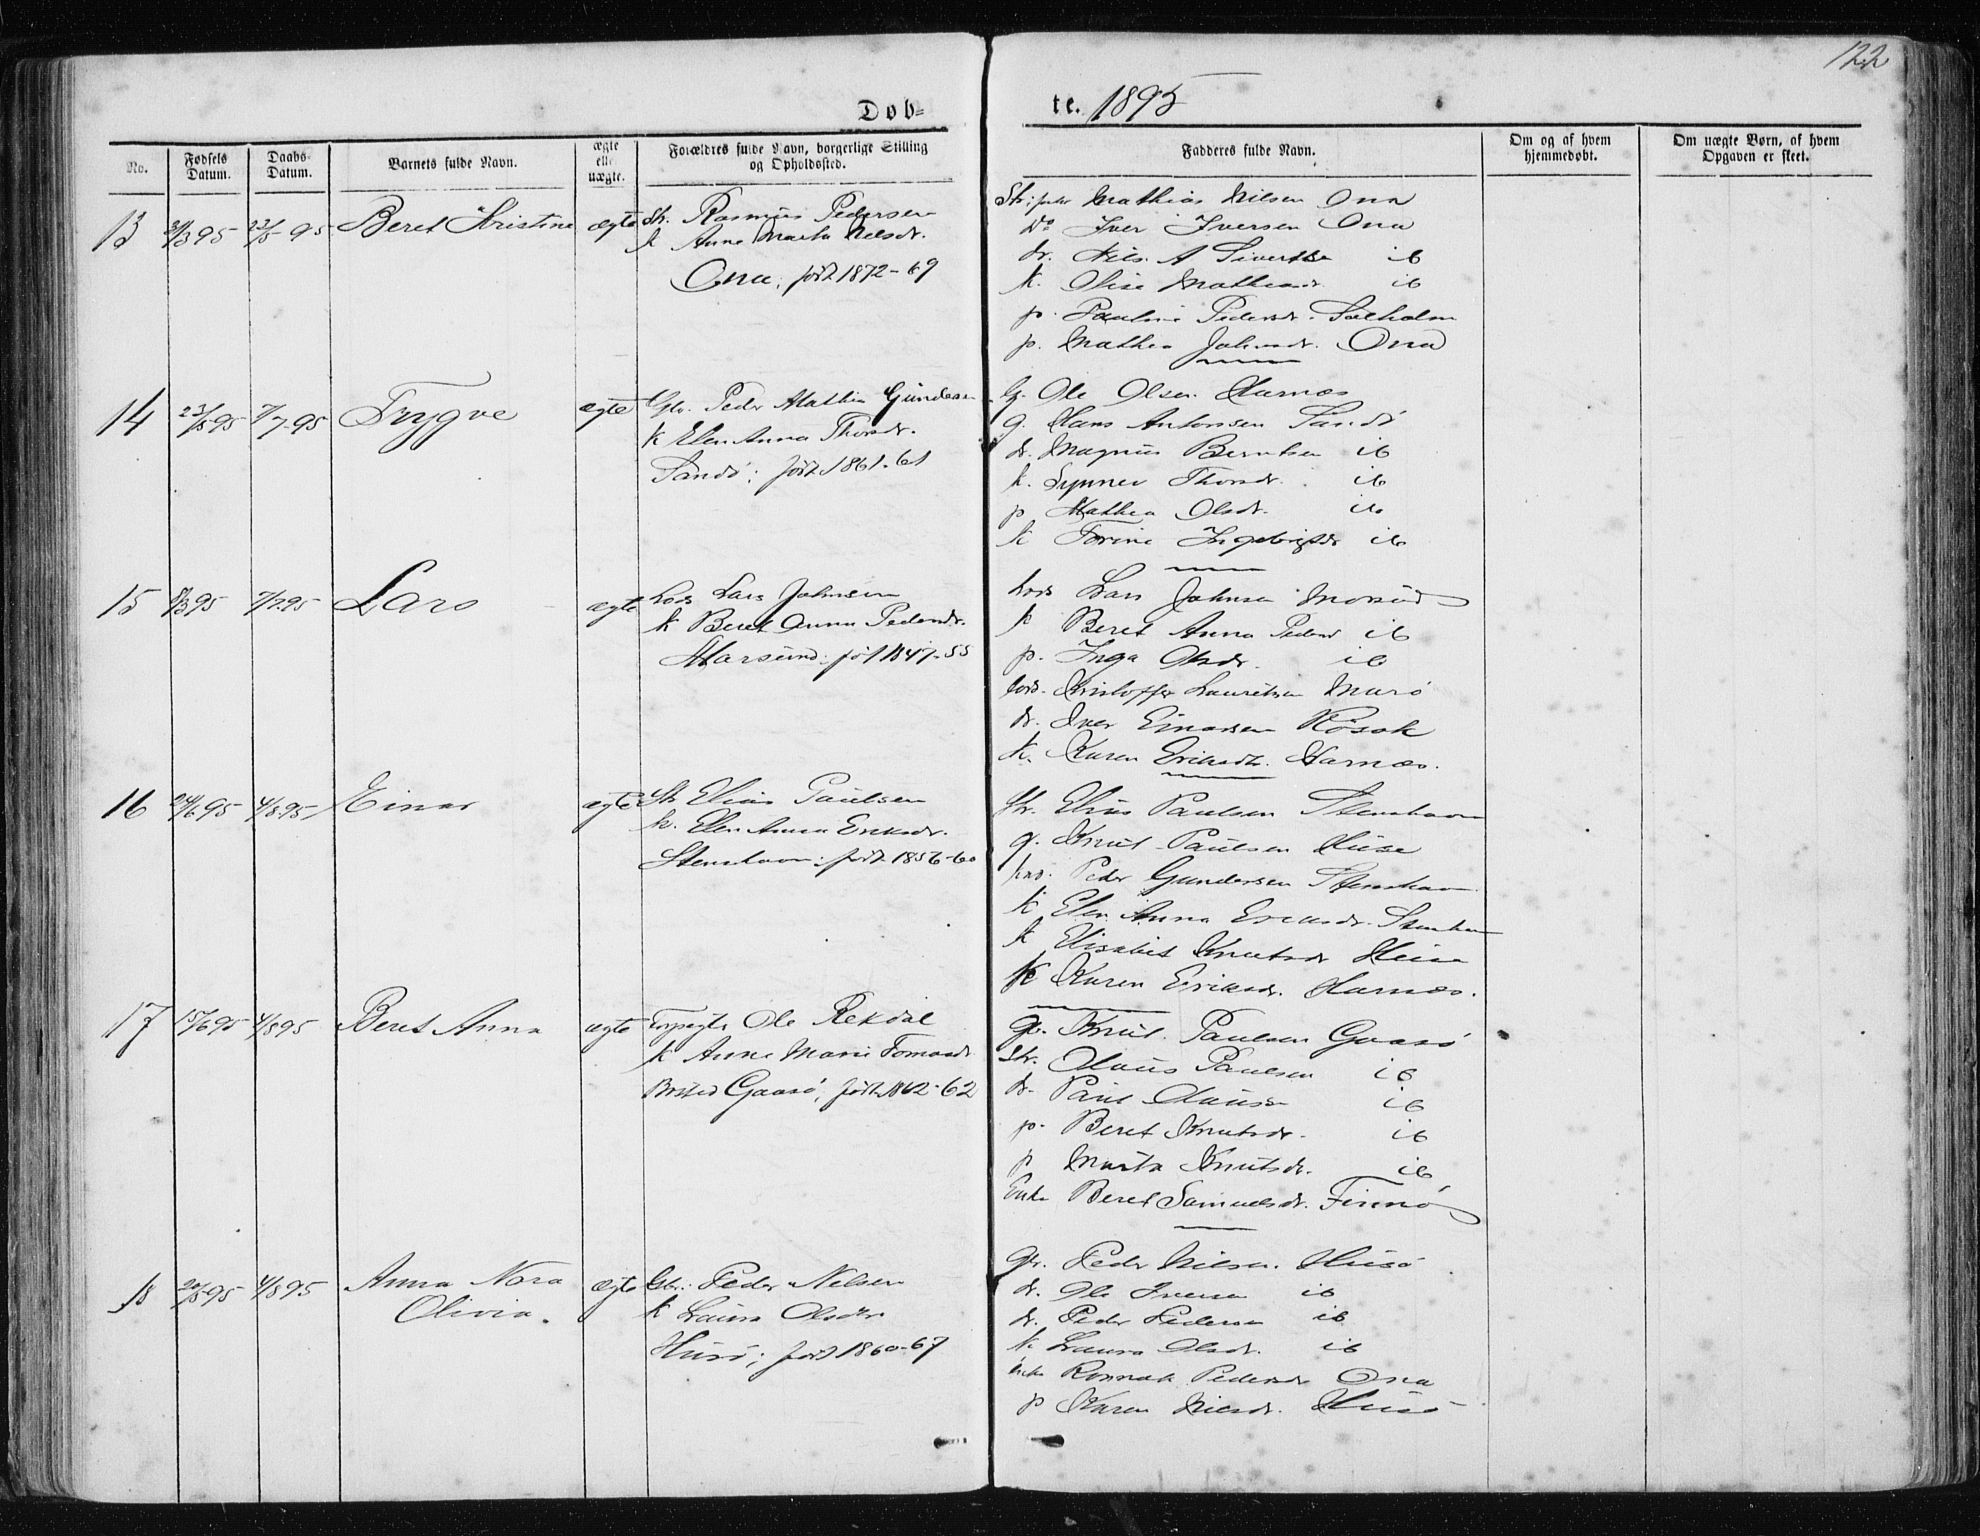 122
Døb=
te. 1895
No.
Fødsels Datum.
Daabs- Datum.
Barnets fulde Navn.
ægte elle uægte.
Forældres fulde Navn, borgerlige Stilling og Opholdssted.
Fadderes fulde Navn.
Om og af hvem hjemmedøbt.
Om uægte Børn, af hvem Opgaven er skeet.
13 95 95 Beret Kristine ægte Str. Rasmus Pedersen
k Anne Marta Nilsdr.
Ona; født 1872-69
Mathias Nilsen Ona
Do Iver Iversen Ona
dr. Nils A Sivertsen ib
k. Olise Mathiasdr ib
p. Pauline Pedersdr. Sætholm
p. Mathea Johnsdr. Ona
14 23/5 95 7/7 95 Trygve ægte Gbr. Peder Mathias Gundersen
k Elen Anna Thorsdr.
Sandø; født 1861-61
G. Ole Olsen Harnæs
g. Hans Antonsen Sandø
dr. Magnus Berntsen ib
k. Synnev Thorsdr. ib
p Mathea Olsdr. ib
k Torine Ingebrigtsdr ib
15 8/3 95 7/7 95 Lars ægte Lods Lars Johnsen
k Beret Anna Pedersdr.
Marsund; født 1847-55
Lods Lars Johnsen Morsund
k Beret Anna Pedersd ib
p. Inga Olsdr. ib
Lods. Kristoffer Lauritsen Marø
dr. Iver Einarsen Røsok
k. Karen Eriksdtr. Harnæs.
16 24/6 95 4/8 95 Einar ægte Str Elias Paulsen
k. Elen Anna Eriksdr.
Stenshavn; født 1856-60
Str. Elias Paulsen Stenshavn
g. Knut Paulsen Huse
Peder Gundersen Stenshavn
k Elen Anna Eriksdr. Stenshavn
k Elisabet Knutsdr Huse
k Karen Eriksdr. Harnæs.
17 15/6 95 4/8 95 Beret Anna ægte Ole Rekdal
k Anne Marie Tomasdr
Bosted Gaasø; født 1862-62
gbr. Knut Paulsen Gaasø
Str. Olaus Paulsen ib
dr. Paul Olausen ib
p. Beret Knutsdr. ib
p Marta Knutsdr. ib
Enke Beret Samuelsdr. Finnø
18 20/5 95 4/8 95 Anna Nora ægte Gbr: Peder Nelsen
Olivia.
k Laura Olsdtr
Husø; født 1860-67
gbr. Peder Nilsen Husø
dr. Ole Iversen ib
dr. Peder Pedersen ib
k. Laura Olsdr. ib
enke Ronnak Pedersdr Ona
p Karen Nilsdr. Husø